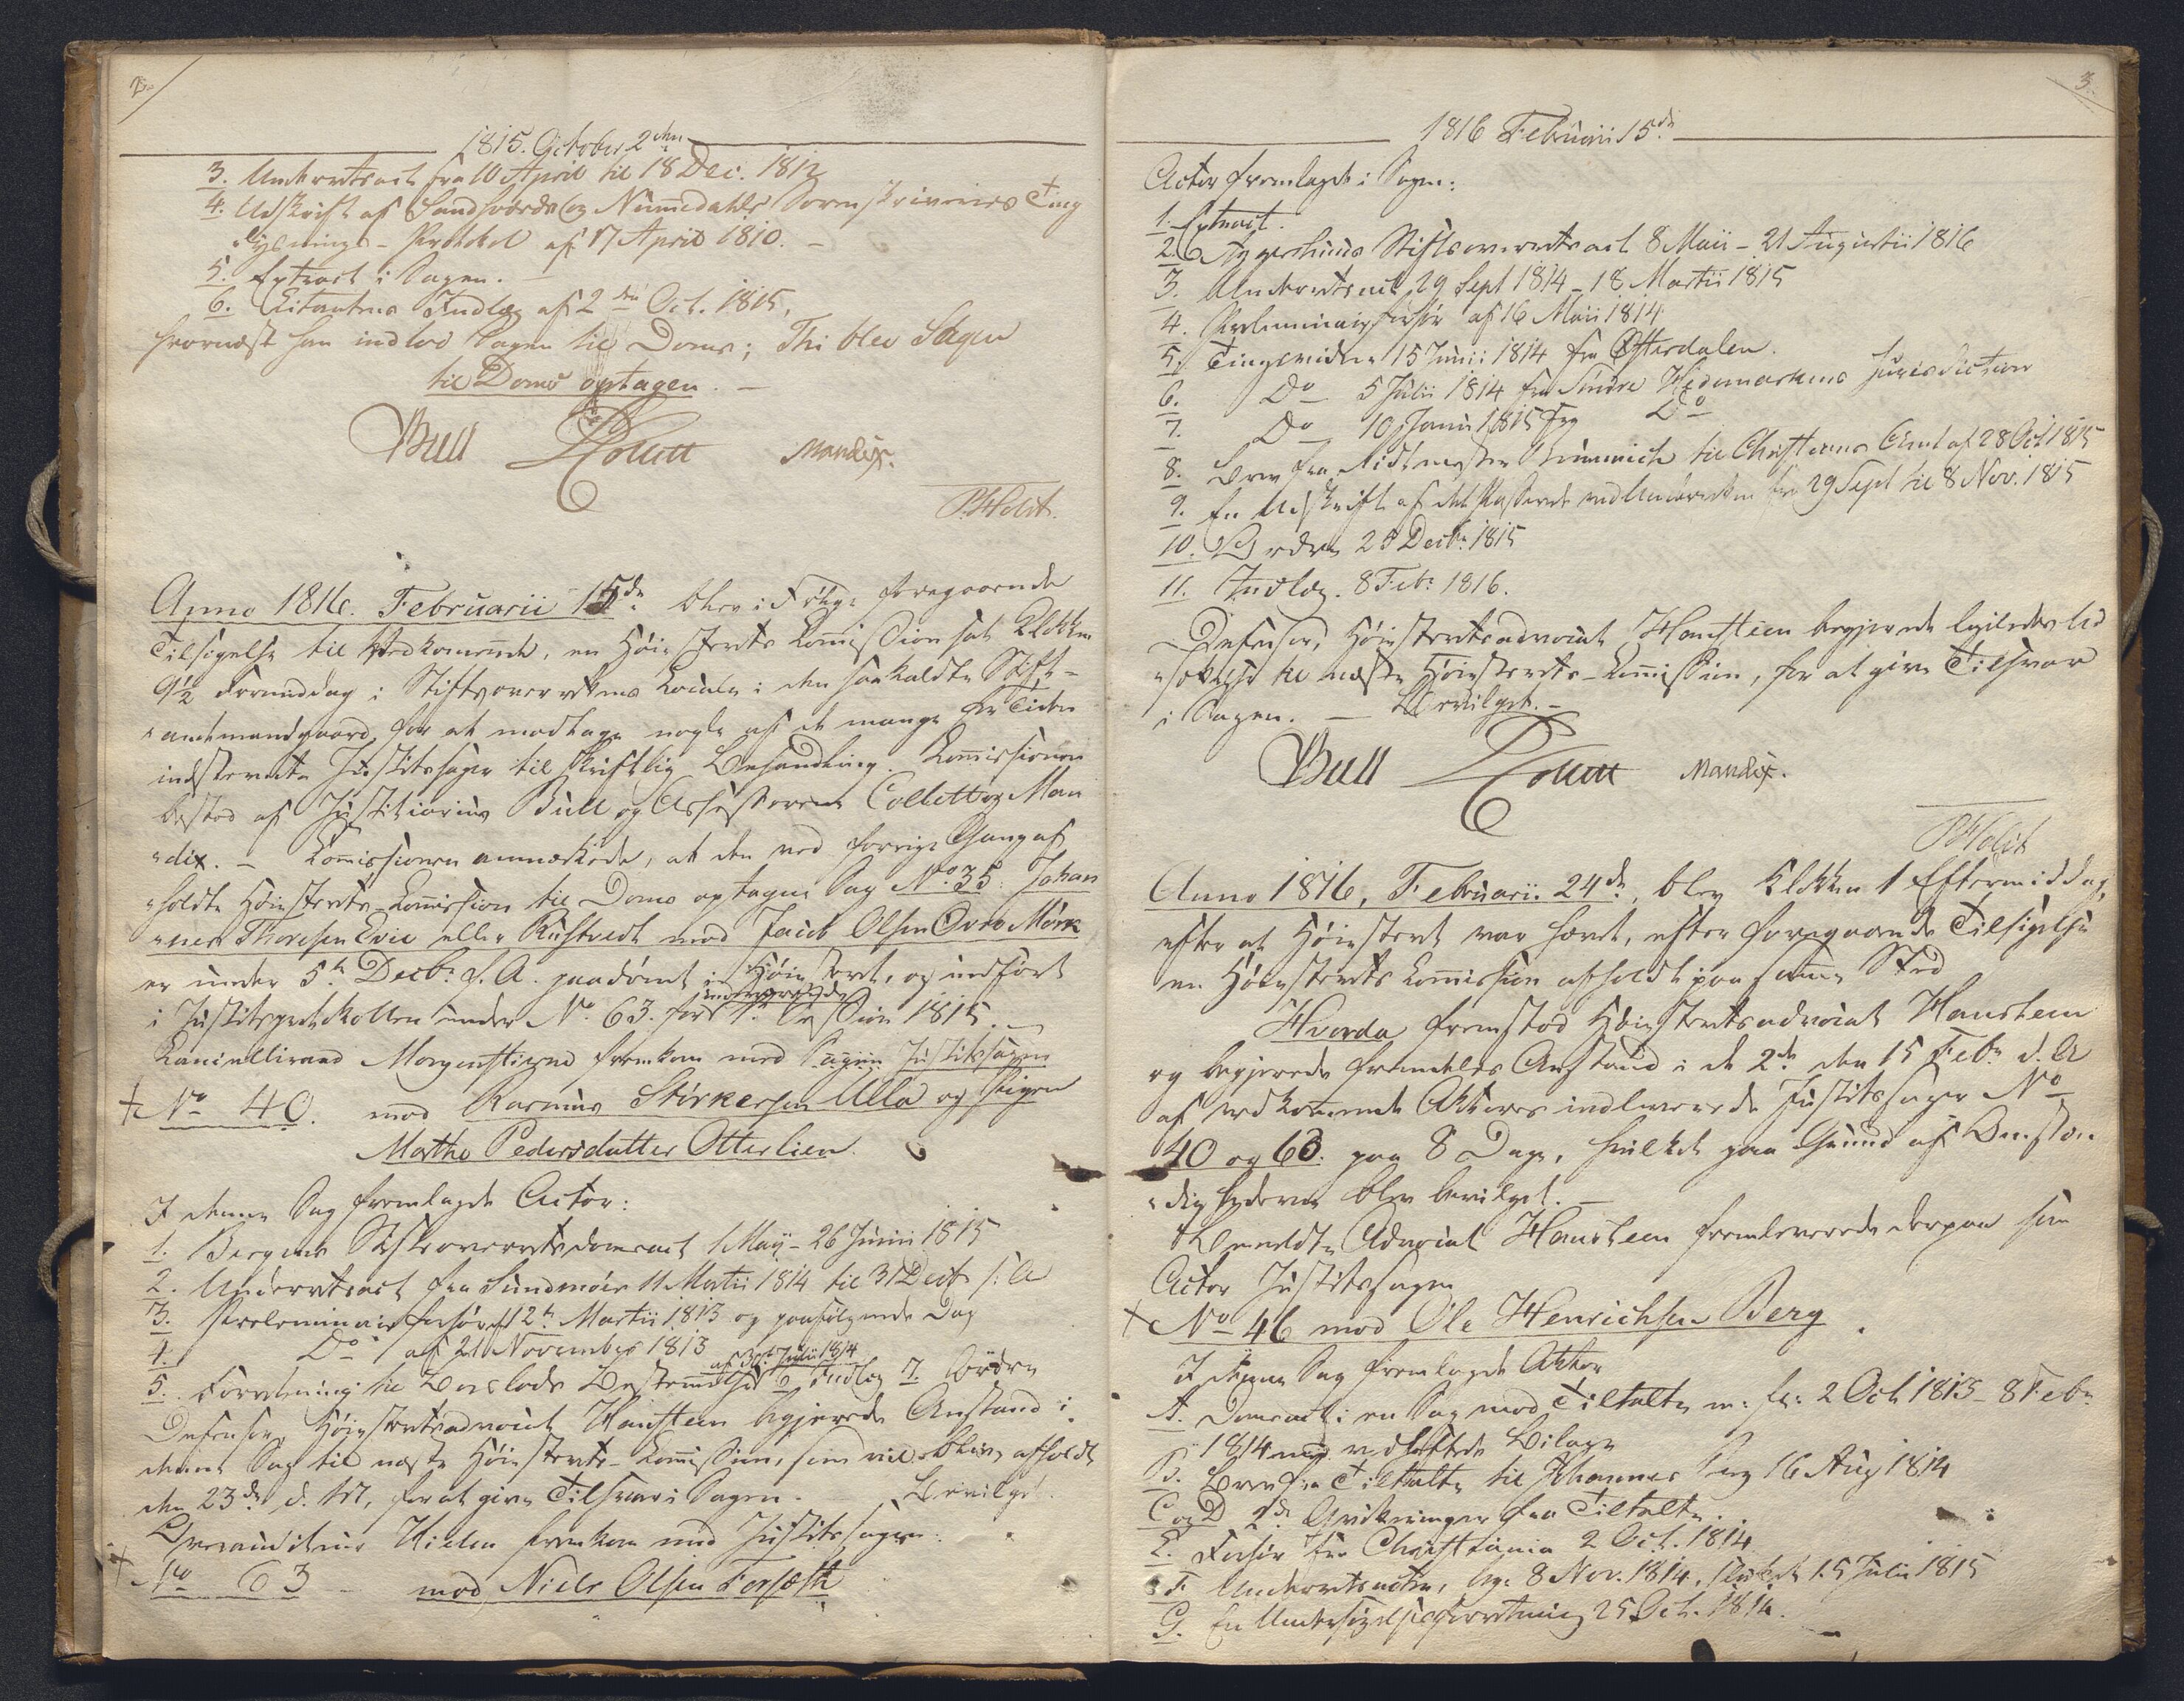 2.
1815. October 2den
3. Underretsact fra 10 April til 18 Dec. 1812
4. Udskrift af Sandsværds og Numedahls Sorenskriveries Ting
"lysnings-Protokol af 17 April 1810. –
5. Extract i Sagen. –
6. Citantens Indlæg af 2den Oct. 1815,
hvornæst han indlod Sagen til Doms; Thi blev Sagen
til Doms optagen. –
Bull Collett Mandix.
P. Holst.
Anno 1816. Februarii 15de blev i Følge foregaaende
Tilsigelse til Vedkommende, en Høiesterets Commission sat Klokken
9½ Formiddag i Stiftsoverrettens Locale i den saakaldte Stift-
"amtmandgaard, for at modtage nogle af de mange for Tiden
indstevnte Justitssager til skriftlig Behandling. Commissionen
bestod af Justitiarius Bull og Assessorerne Collett og Man
"dix. – Commissionen anmærkede, at den ved forrige Gang af
"holdte Høiesterets-Commission til Doms optagne Sag No. 35. Johan
"nes Thoresen Evie eller Rustvedt mod Jacob Olsen Øvre Mørk
er under 5te Decbr. f. A. paadømt i Høiesteret, og indført
i Justitsprotokollen under No. 63. for 1te Session 1815. –
Cancelliraad Morgenstierne fremkom med Sagen Justitssagen
+ No 40. mod Rasmus Størkersen Ulla og Pigen
Marthe Pedersdatter Otterlien.
I denne Sag fremlagde Actor:
1. Bergens Stiftsoverretsdomsact 1 Maij – 26 Junii 1815
2. Underretsact fra Sundmøer 11 Martii 1814 til 31 Decb. s. A
3. Preliminairforhør af 12te Martii 1813 og paafølgende Dag
4. Do af 21 November 1813
af 30 Julii 1814
5. Forretning til Boeslods Bestemmelse 6 Indlæg 7. Ordre
Defensor, Høiesteretsadvocat Hansteen begjerede Anstand i
denne Sag til næste Høiesterets-Commission, som vil blive afholdt
den 23de d. M, for at give Tilsvar i Sagen. – Bevilget.
Overauditeur Hielm fremkom med Justitssagen:
+ No 63 – mod Niels Olsen Forseth
3.
1816 Februarii 15de
Actor fremlagde i Sagen:
1. Extract.
2. Aggershuus Stiftsoverretsact 8 Maii – 21 Augustii 1816
3. Underretsact 29 Sept 1814 – 18 Martii 1815
4. Preliminairforhør af 16 Maii 1814
5. Tingsvidne 15 Junii 1814 fra Østerdalen.
6. Do 5 Julii 1814 fra Søndre Hedemarkens Jurisdiction
7. Do 10 Januar 1815 fra Do
8. Brev fra Ridtmester til Christians Amt af 28 Oct 1815
9. En Udskrift af det Passerede ved Underretten fra 29 Sept til 8 Nov. 1815
10. Ordre 28 Decbr. 1815
11. Indlæg. 8 Feb. 1816.
Defensor, Høiesteretsadvocat Hansteen begjerede Sagen ud
"sat til næste Høiesterets-Commission, for at give Tilsvar
i Sagen. – Bevilget. –
Bull Collett Mandix.
P. Holst
Anno 1816, Februarii 24de, blev Klokken 1 Eftermiddag,
efter at Høiesteret var hævet, efter foregaaende Tilsigelse
en Høiesterets Commission afholdt paa samme Sted
Hvorda fremstod Høiesteretsadvocat Hansteen
og begjerede fremdeles Anstand i de 2de den 15 Feb. d. A
af vedkommende Aktorer indleverede Justitssager No
40 og 63. paa 8 Dage, hvilket paa Grund af Omstæn
"dighederne blev bevilget. –
Bemeldte Advocat Hansteen fremleverede derpaa som
Actor Justitssagen
+ No 46 mod Ole Henrichsen Berg
I denne Sag fremlagde Aktor
A. Domsact i en Sag mod Tiltalte m: fl: 2 Oct 1813 – 8 Feb.
1814 med vedheftede Bilage
B. Brev fra Tiltalte til Johannes Berg 16 Aug 1814
C og D 2de Qvitteringer fra Tiltalte.
E. Forhør fra Christiania 2 Oct. 1814
F. Underretsacten, beg: 8 Nov. 1814, sluttet 15 Julii 1815
G. En Undersøgelsesforretning 25 Oct. 1814.